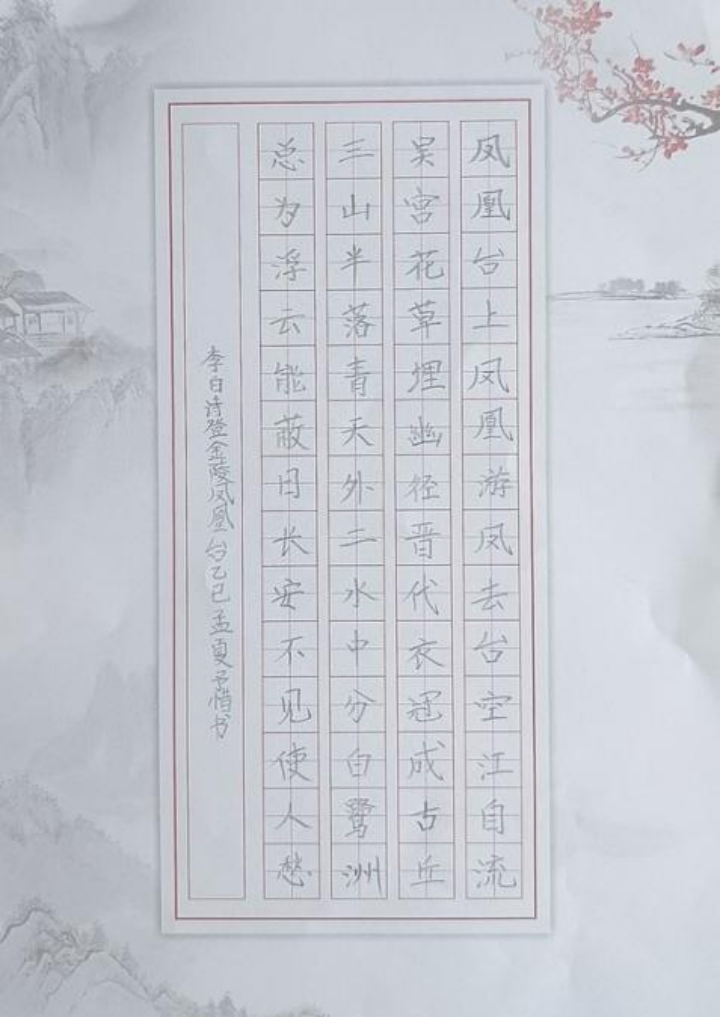 凤凰台上凤凰游凤去台空江自流
吴宫花草埋幽径晋代衣冠成古丘
三山半落青天外二水中分白鹭洲
总为浮云能蔽日长安不见使人愁
李白诗登金陵凤凰台乙巳孟夏予惜书